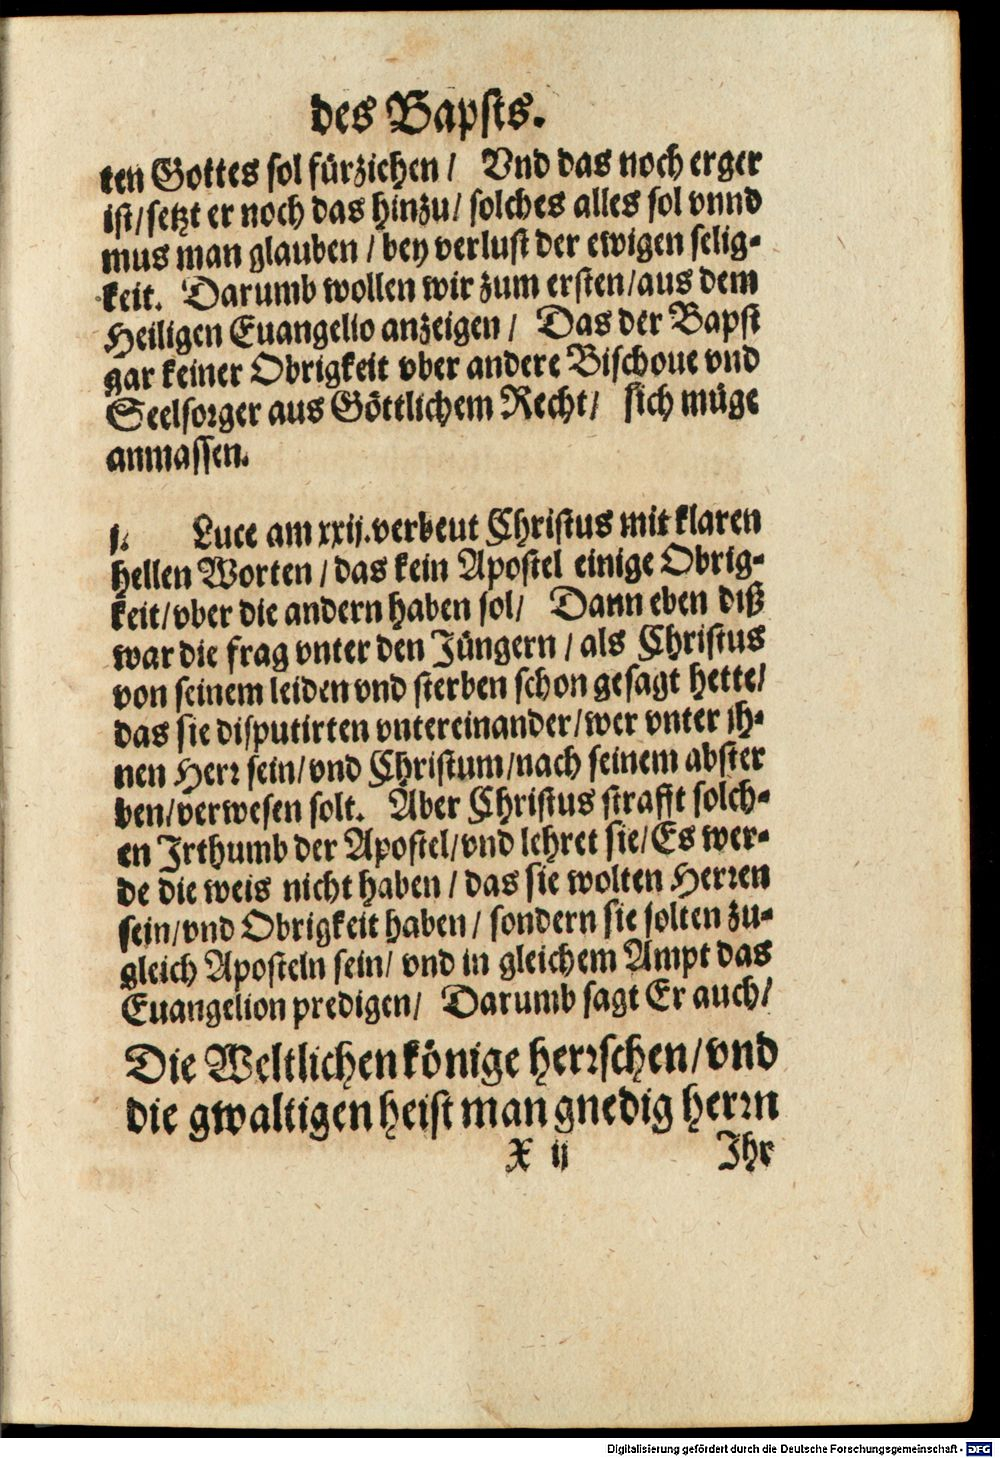 des Bapsts.
ten Gottes sol fürziehen / Vnd das noch erger
ist/setzt er noch das hinzu/ solches alles sol vnnd
mus man glauben / bey verlust der ewigen selig-
keit. Darumb wollen wir zum ersten/aus dem
Heiligen Euangelio anzeigen / Das der Bapst
gar keiner Obrigkeit vber andere Bischoue vnd
Seelsorger aus Göttlichem Recht/ sich müge
anmassen.
j. Luce am xxij. verbeut Christus mit klaren
hellen Worten / das kein Apostel einige Obrig-
keit/vber die andern haben sol/ Dann eben diß
war die frag vnter den Jüngern / als Christus
von seinem leiden vnd sterben schon gesagt hette/
das sie disputirten vntereinander/wer vnter ih-
nen Herr sein/vnd Christum/nach seinem abster
ben/verwesen solt. Aber Christus strafft solch-
en Irthumb der Apostel/vnd lehret sie/Es wer-
de die weis nicht haben / das sie wolten Herren
sein/vnd Obrigkeit haben / sondern sie solten zu-
gleich Aposteln sein/ vnd in gleichem Ampt das
Euangelion predigen/ Darumb sagt Er auch/
Die Weltlichen könige herrschen/vnd
die gwaltigen heist man gnedig herrn
X ij Ihr
Digitalisierung gefördert durch die Deutsche Forschungsgemeinschaft - DFG